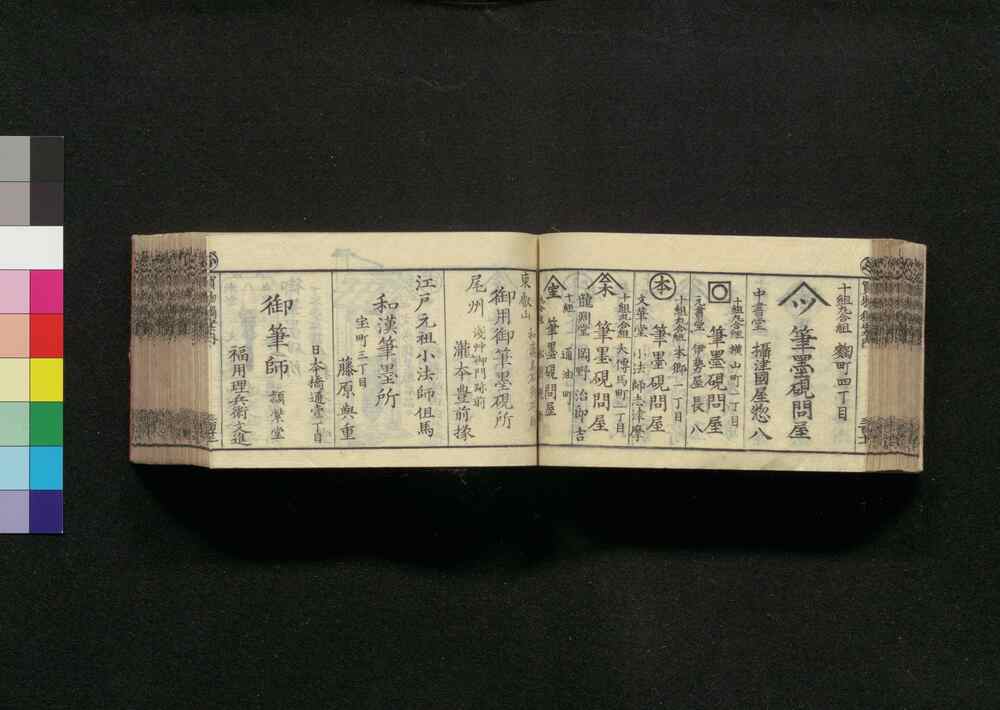 十組丸合組 麹町四丁目
ツ 筆墨硯問屋
中書堂 攝津國屋惣八
十組丸合組 横山町一丁目
筆墨硯問屋
元書堂 伊勢屋長八
十組丸合組 本郷一丁目
本 筆墨硯問屋
文華堂 小法師志津摩
十組丸合組 大傳馬町二丁目
筆墨硯問屋
龍興堂 岡野治郎吉
十組 通油町
筆墨硯問屋
東叡山
御用御筆墨硯所
尾州 浅艸御門跡前
瀧本豊前掾
江戸元祖小法師但馬
和漢筆墨所
室町三丁目
藤原興重
御筆師
日本橋通壹丁目
福用理兵衛文進